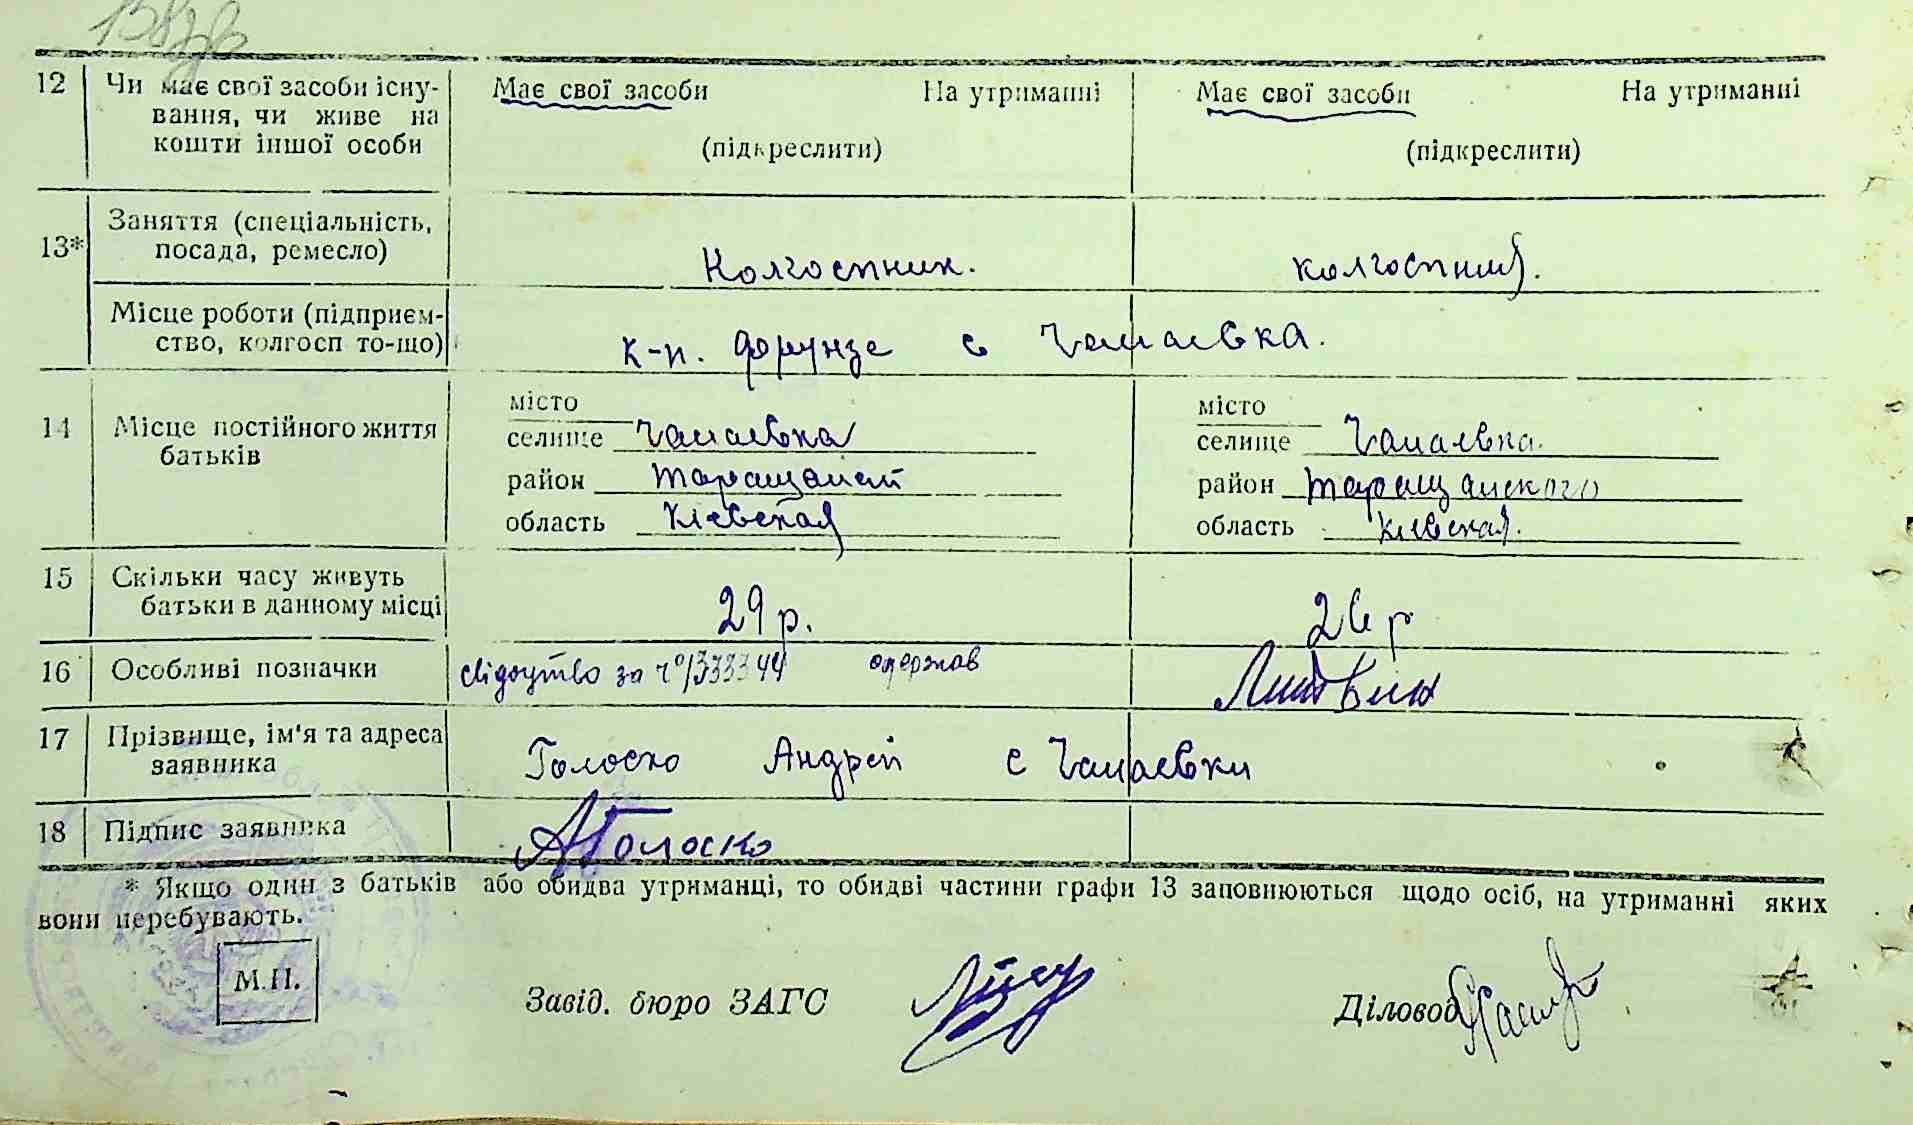 12 Чи має свої засоби існу- Має свої засоби На утриманні Має свої засоби На утриманні
вання, чи живе на
кошти іншої особи (підкреслити) (підкреслити)
Заняття (спеціальність,
13* посада, ремесло) Колгоспник. колгоспниця.
Місце роботи (підприєм-
ство, колгосп то-що) к-п. Фрунзе с Чапаевка.
місто місто
14 Місце постійного життя селище Чапаевка селище Чапаевка.
батьків
район Таращанск район Таращанского
область Кіевская область Кіевская.
15 Скільки часу живуть
батьки в данному місці 29 р. 26 р
16 Особливі позначки свідоцтво за одержав
17 Прізвище, ім'я та адреса Голоско Андрей с Чапаевки
заявника
18 Підпис заявника АГолоско
* Якщо один з батьків або обидва утриманці, то обидві частини графи 13 заповнюються щодо осіб, на утриманні яких
вони перебувають.
М.П. Завід. бюро ЗАГС Діловод